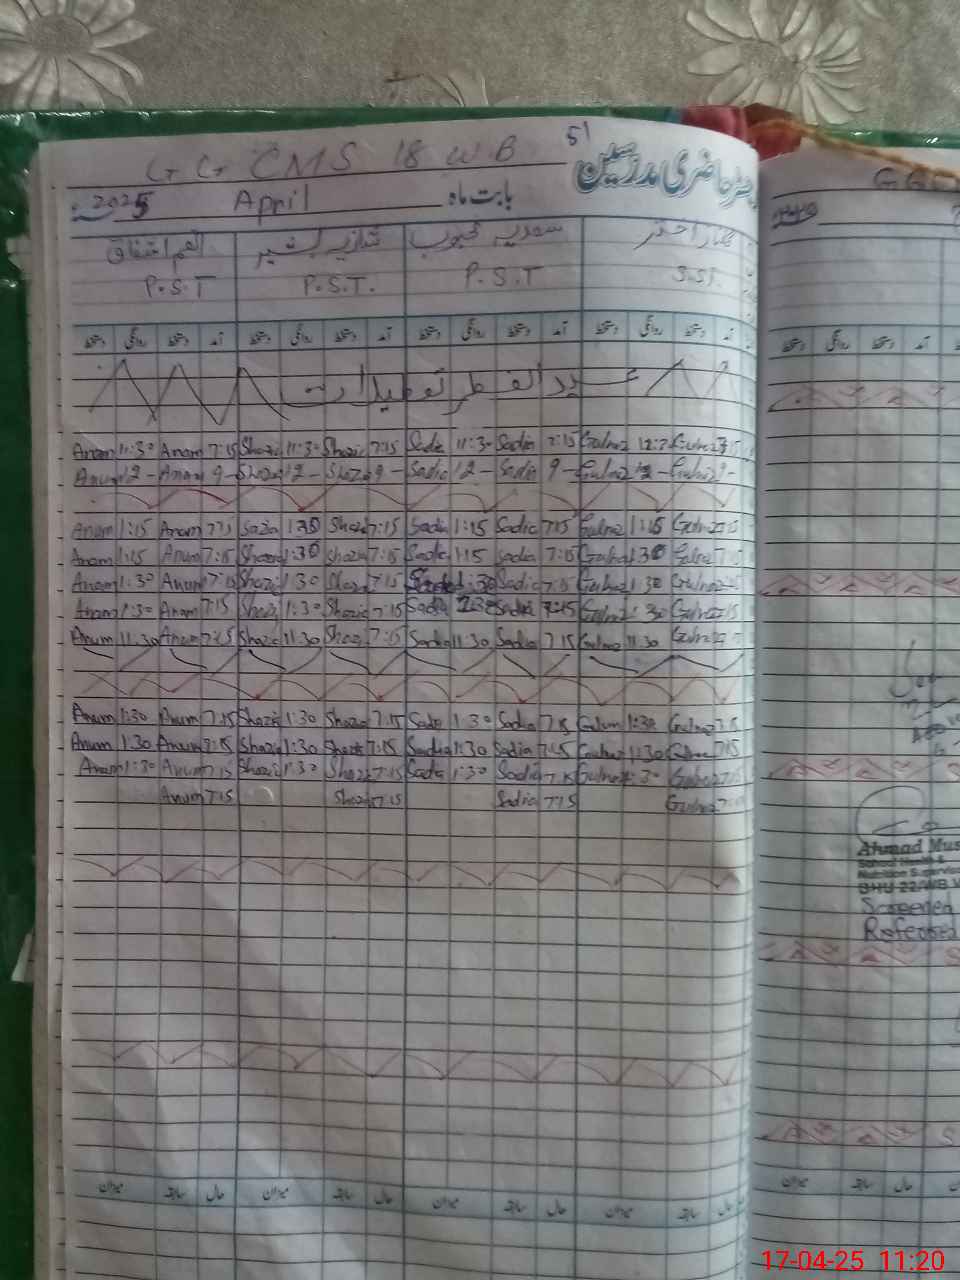 51
G G CMS 18 W B رجسٹر حاضری مدرسین
2025 April بابت ماہ
انعم اشتفاق شازیہ بشیر سعدیہ محبوب گلناز اختر
P.S.T P.S.T. P.S.T S.ST.
دستخط روانگی دستخط آمد دستخط روانگی دستخط آمد دستخط روانگی دستخط آمد دستخط روانگی دستخط آمد
عید الفطر تعطیلات
Anam 11:30 Anam 7:15 Shazi 11:30 Shazi 7:15 Sadi 11:30 Sadia 7:15 Gulnaz Gulnaz
Anum 12 - Anam 9 - Shazi 12 - Shazia 9 - Sadic 12 - Sadia 9 - Gulnaz 12 - Gulnaz 9 -
Anum 1:15 Anam 7:15 Sazia 1:30 Shazi 7:15 Sadia 1:15 Sadia 7:15 Gulnaz 1:15 Gulnaz 7:15
Anam 1:15 Anum 7:15 Shazia 1:30 Shazia 7:15 Sadic 1:15 Sadia 7:15 Gulnaz 1:30 Gulnaz 7:15
Anam 1:30 Anum 7:15 Shazi 1:30 Shazi 7:15 1:30 Sadia 7:15 Gulnaz 1:30 Gulnaz
Anam 1:30 Anam 7:15 Shazi 1:30 Shazia 7:15 Sadia 1:30 Sadia 7:15 Gulnaz 1:30 Gulnaz 7:15
Anum 11.30 Anum 7:15 Shazia 11.30 Shazi 7:15 Sadia 11 30 Sadia 7 15 Gulnaz 11.30 Gulnaz
Anum 1:30 Anum 7:15 Shazia 1:30 Shazia 7:15 Sadi 1:30 Sadia 7:15 Gulnaz 1:30 Gulnaz 7:15
Anum 1:30 Anum 7:15 Shazia 1:30 Shazia 7:15 Sadia 1:30 Sadia 7:15 Gulnaz 1:30 Gulnaz 7:15
Anam 1:30 Anum 7:15 Shazi 1:30 Shazi 7:15 Sadi 1:30 Sadia 7:15 Gulnaz 1:30 Gulnaz 7:15
Anum 7:15 Shazi 7:15 Sadia 7:15 Gulnaz
Ahmad Mus
School Health &
Nutrition Supervisor
BHU 22/WB V
Screened
Referred
میزان سابقہ حال میزان سابقہ حال میزان سابقہ حال میزان سابقہ حال
17-04-25 11:20